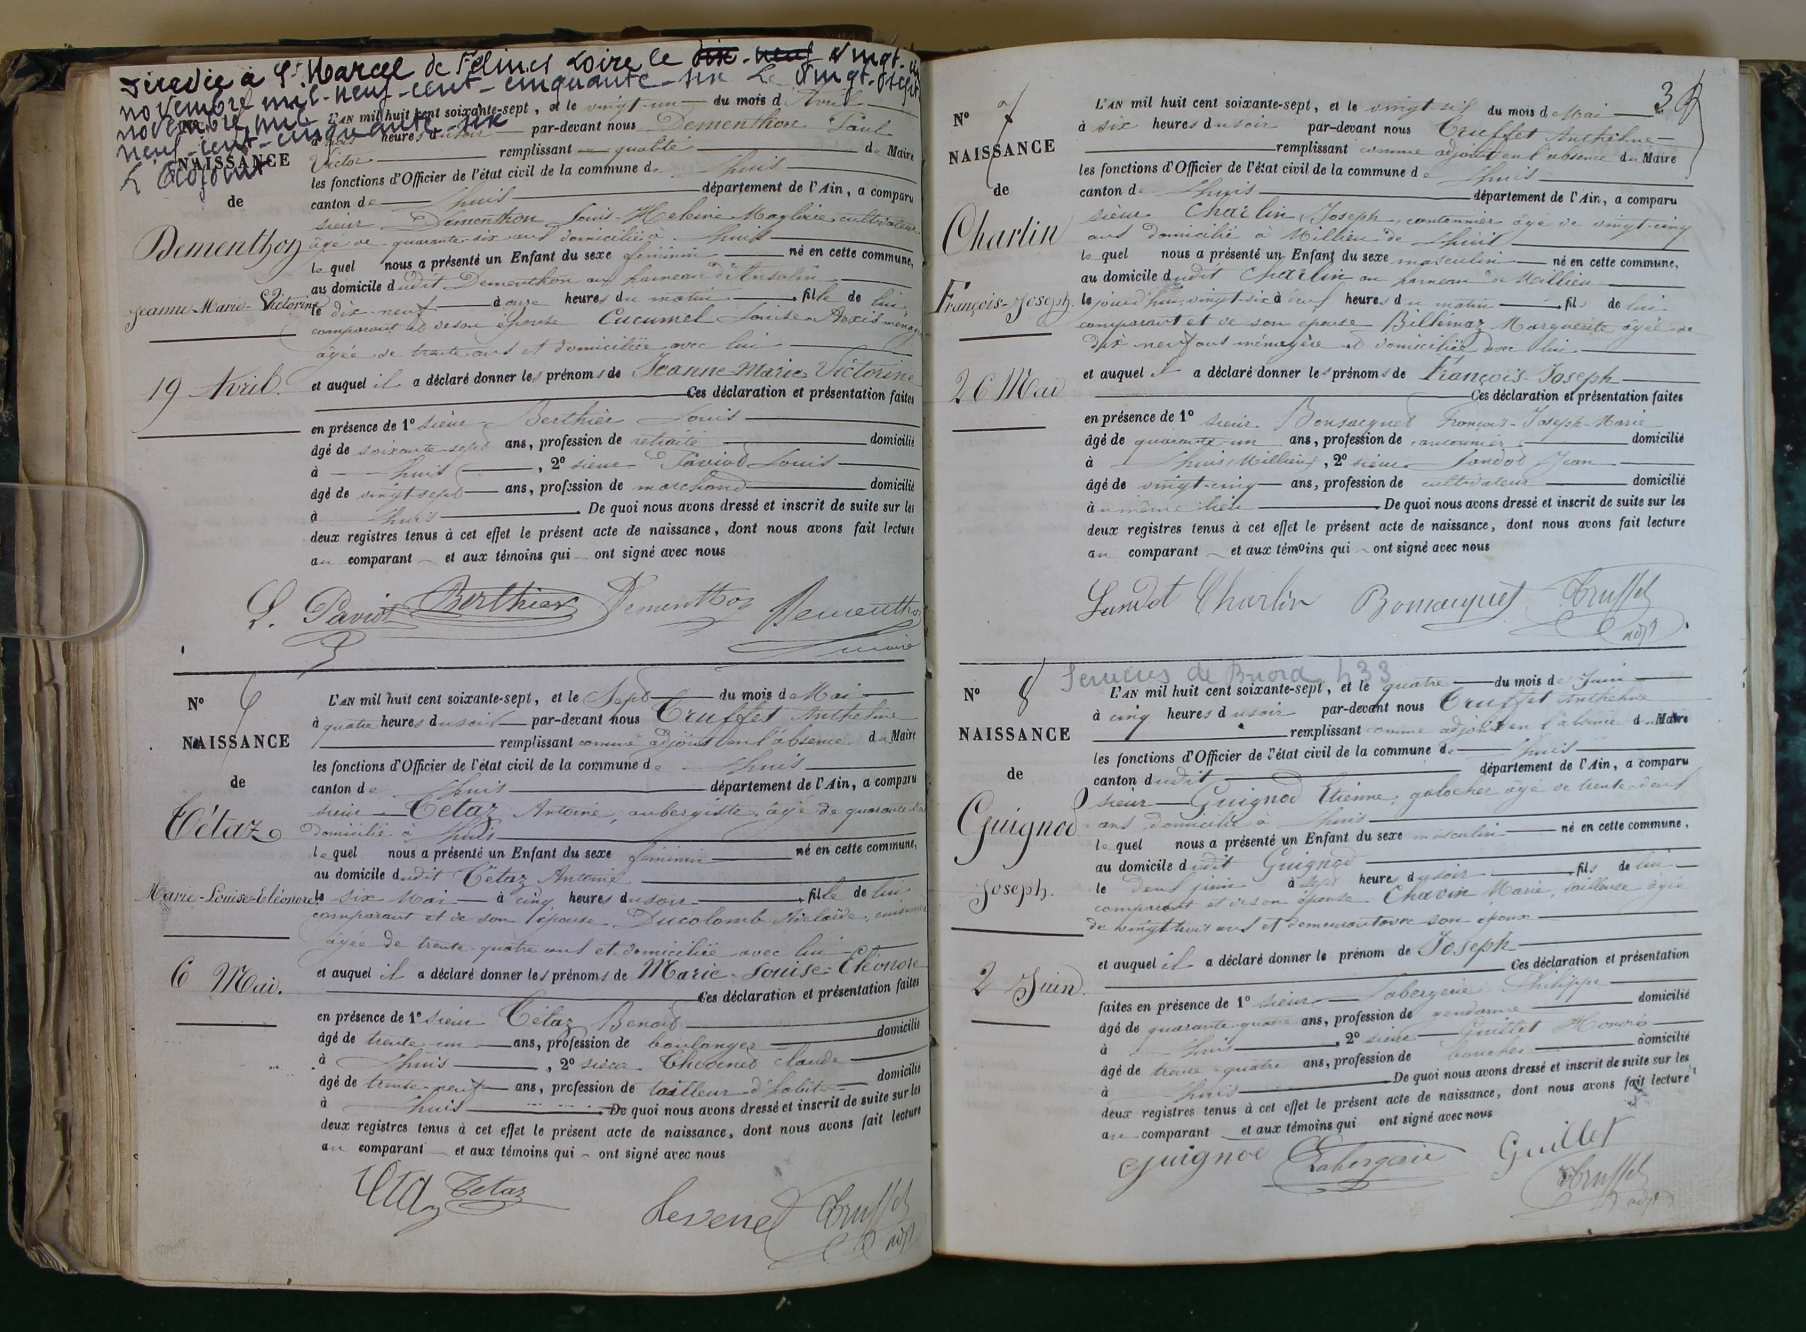 Décédée à St Marcel de Félines Loire le dix-neuf vingt-
novembre mil-neuf-cent-cinquante-six Le vingt-sept
novembre mil
neuf-cent-cinquante-six
L'adjoint
NAISSANCE
de
Dementhon
Jeanne-Marie-Victorine
19 Avril.
L'AN mil huit cent soixante-sept, et le vingt-un du mois d'Avril
heures du soir par-devant nous Dementhon Paul
Victor remplissant qualité de Maire
les fonctions d'Officier de l'état civil de la commune de Lhuis
canton de Lhuis département de l'Ain, a comparu
sieur Dementhon Louis-Helène Magloire cultivateur
âgé de quarante-six ans domicilié à Lhuis
lequel nous a présenté un Enfant du sexe féminin né en cette commune,
au domicile dudit Dementhon au hameau d'Ansolin
le dix-neuf à onze heures du matin fille de lui
comparant et de son épouse Cucumel Louise ménagère
âgée de trente ans et domiciliée avec lui
et auquel il a déclaré donner les prénoms de Jeanne Marie Victorine
Ces déclaration et présentation faites
en présence de 1° sieur Berthier Louis
âgé de soixante-sept ans, profession de retraité domicilié
à Lhuis, 2° sieur Paviot Louis
âgé de vingt sept ans, profession de marchand domicilié
à Lhuis. De quoi nous avons dressé et inscrit de suite sur les
deux registres tenus à cet effet le présent acte de naissance, dont nous avons fait lecture
au comparant et aux témoins qui ont signé avec nous
L. Paviot Berthier Dementhon Dementhon
maire
N° 6
NAISSANCE
de
Tétaz
Marie-Louise-Eléonore
6 Mai.
L'AN mil huit cent soixante-sept, et le Sept du mois de Mai
à quatre heures du soir par-devant nous Truffet Anthelme
remplissant comme adjoint en l'absence du Maire
les fonctions d'Officier de l'état civil de la commune de Lhuis
canton de Lhuis département de l'Ain, a comparu
sieur Tétaz Antoine, aubergiste, âgé de quarante
domicilié à Lhuis
lequel nous a présenté un Enfant du sexe féminin né en cette commune,
au domicile dudit Tétaz Antoine
le six Mai à cinq heures du soir fille de lui
comparant et de son épouse Ducolomb Adelaïde, cuisinière
âgée de trente-quatre ans et domiciliée avec lui
et auquel il a déclaré donner les prénoms de Marie-Louise-Eléonore
Ces déclaration et présentation faites
en présence de 1° sieur Tétaz Benoit
âgé de trente-un ans, profession de boulanger domicilié
à Lhuis, 2° sieur Thévenet Claude
âgé de trente-neuf ans, profession de tailleur d'habits domicilié
à Lhuis De quoi nous avons dressé et inscrit de suite sur les
deux registres tenus à cet effet le présent acte de naissance, dont nous avons fait lecture
au comparant et aux témoins qui ont signé avec nous
Tétaz Tetaz Tevenet Truffet
adjt
3
N° 7
NAISSANCE
de
Charlin
François-Joseph.
26 Mai
L'AN mil huit cent soixante-sept, et le vingt-six du mois de Mai
à six heures du soir par-devant nous Truffet Anthelme
remplissant comme adjoint en l'absence du Maire
les fonctions d'Officier de l'état civil de la commune de Lhuis
canton de Lhuis département de l'Ain, a comparu
sieur Charlin Joseph, cantonnier âgé de vingt-cinq
ans domicilié à Millieu de Lhuis
lequel nous a présenté un Enfant du sexe masculin né en cette commune,
au domicile dudit Charlin au hameau de Millieu
le jourd'hui vingt-six à neuf heures du matin fils de lui
comparant et de son épouse Billémaz Marguerite âgée de
dix neuf ans ménagère et domiciliée avec lui
et auquel il a déclaré donner les prénoms de François-Joseph
Ces déclaration et présentation faites
en présence de 1° sieur Bonsacquet François-Joseph-Marie
âgé de quarante-un ans, profession de cantonnier domicilié
à Lhuis (Millieu), 2° sieur Landot Jean
âgé de vingt-cinq ans, profession de cultivateur domicilié
à même lieu. De quoi nous avons dressé et inscrit de suite sur les
deux registres tenus à cet effet le présent acte de naissance, dont nous avons fait lecture
au comparant et aux témoins qui ont signé avec nous
Landot Charlin Bonsacquet Truffet
adjt
Serrières de Briord h 33
N° 8
NAISSANCE
de
Guignod
Joseph.
2 Juin
L'AN mil huit cent soixante-sept, et le quatre du mois de Juin
à cinq heures du soir par-devant nous Truffet Anthelme
remplissant comme adjoint en l'absence du Maire
les fonctions d'Officier de l'état civil de la commune de Lhuis
canton dudit département de l'Ain, a comparu
sieur Guignod Etienne, galocher âgé de trente-deux
ans domicilié à Lhuis
lequel nous a présenté un Enfant du sexe masculin né en cette commune,
au domicile dudit Guignod
le deux juin à sept heures du soir fils de lui
comparant et de son épouse Chavin Marie, tailleuse âgée
de vingt huit ans et demeurant avec son époux
et auquel il a déclaré donner le prénom de Joseph
Ces déclaration et présentation
faites en présence de 1° sieur Labergerie Philippe
âgé de quarante-quatre ans, profession de gendarme domicilié
à Lhuis, 2° sieur Guillet Honoré
âgé de trente-quatre ans, profession de boucher domicilié
à Lhuis De quoi nous avons dressé et inscrit de suite sur les
deux registres tenus à cet effet le présent acte de naissance, dont nous avons fait lecture
au comparant et aux témoins qui ont signé avec nous
Guignod Labergerie Guillet
Truffet
adjt